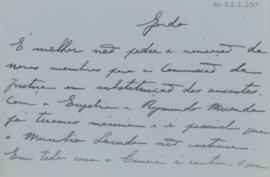 Gordo
É melhor não pedir a nomeação de
novos membros para a Commissão de
Justiça em substituição dos ausentes.
Com o e Raymundo Miranda
já temos maioria e é possivel que
o Lacerda não continue
Em todo caso o é contra. O que